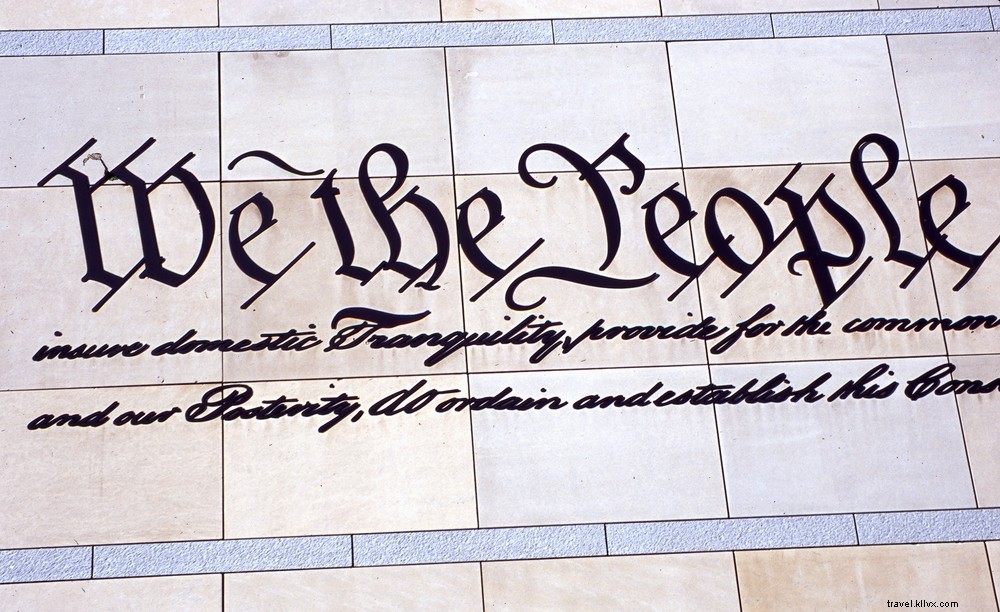 We the People
insure domestic Tranquility, provide for the common
and our Posterity, do ordain and establish this Cons
travel.kllvx.com